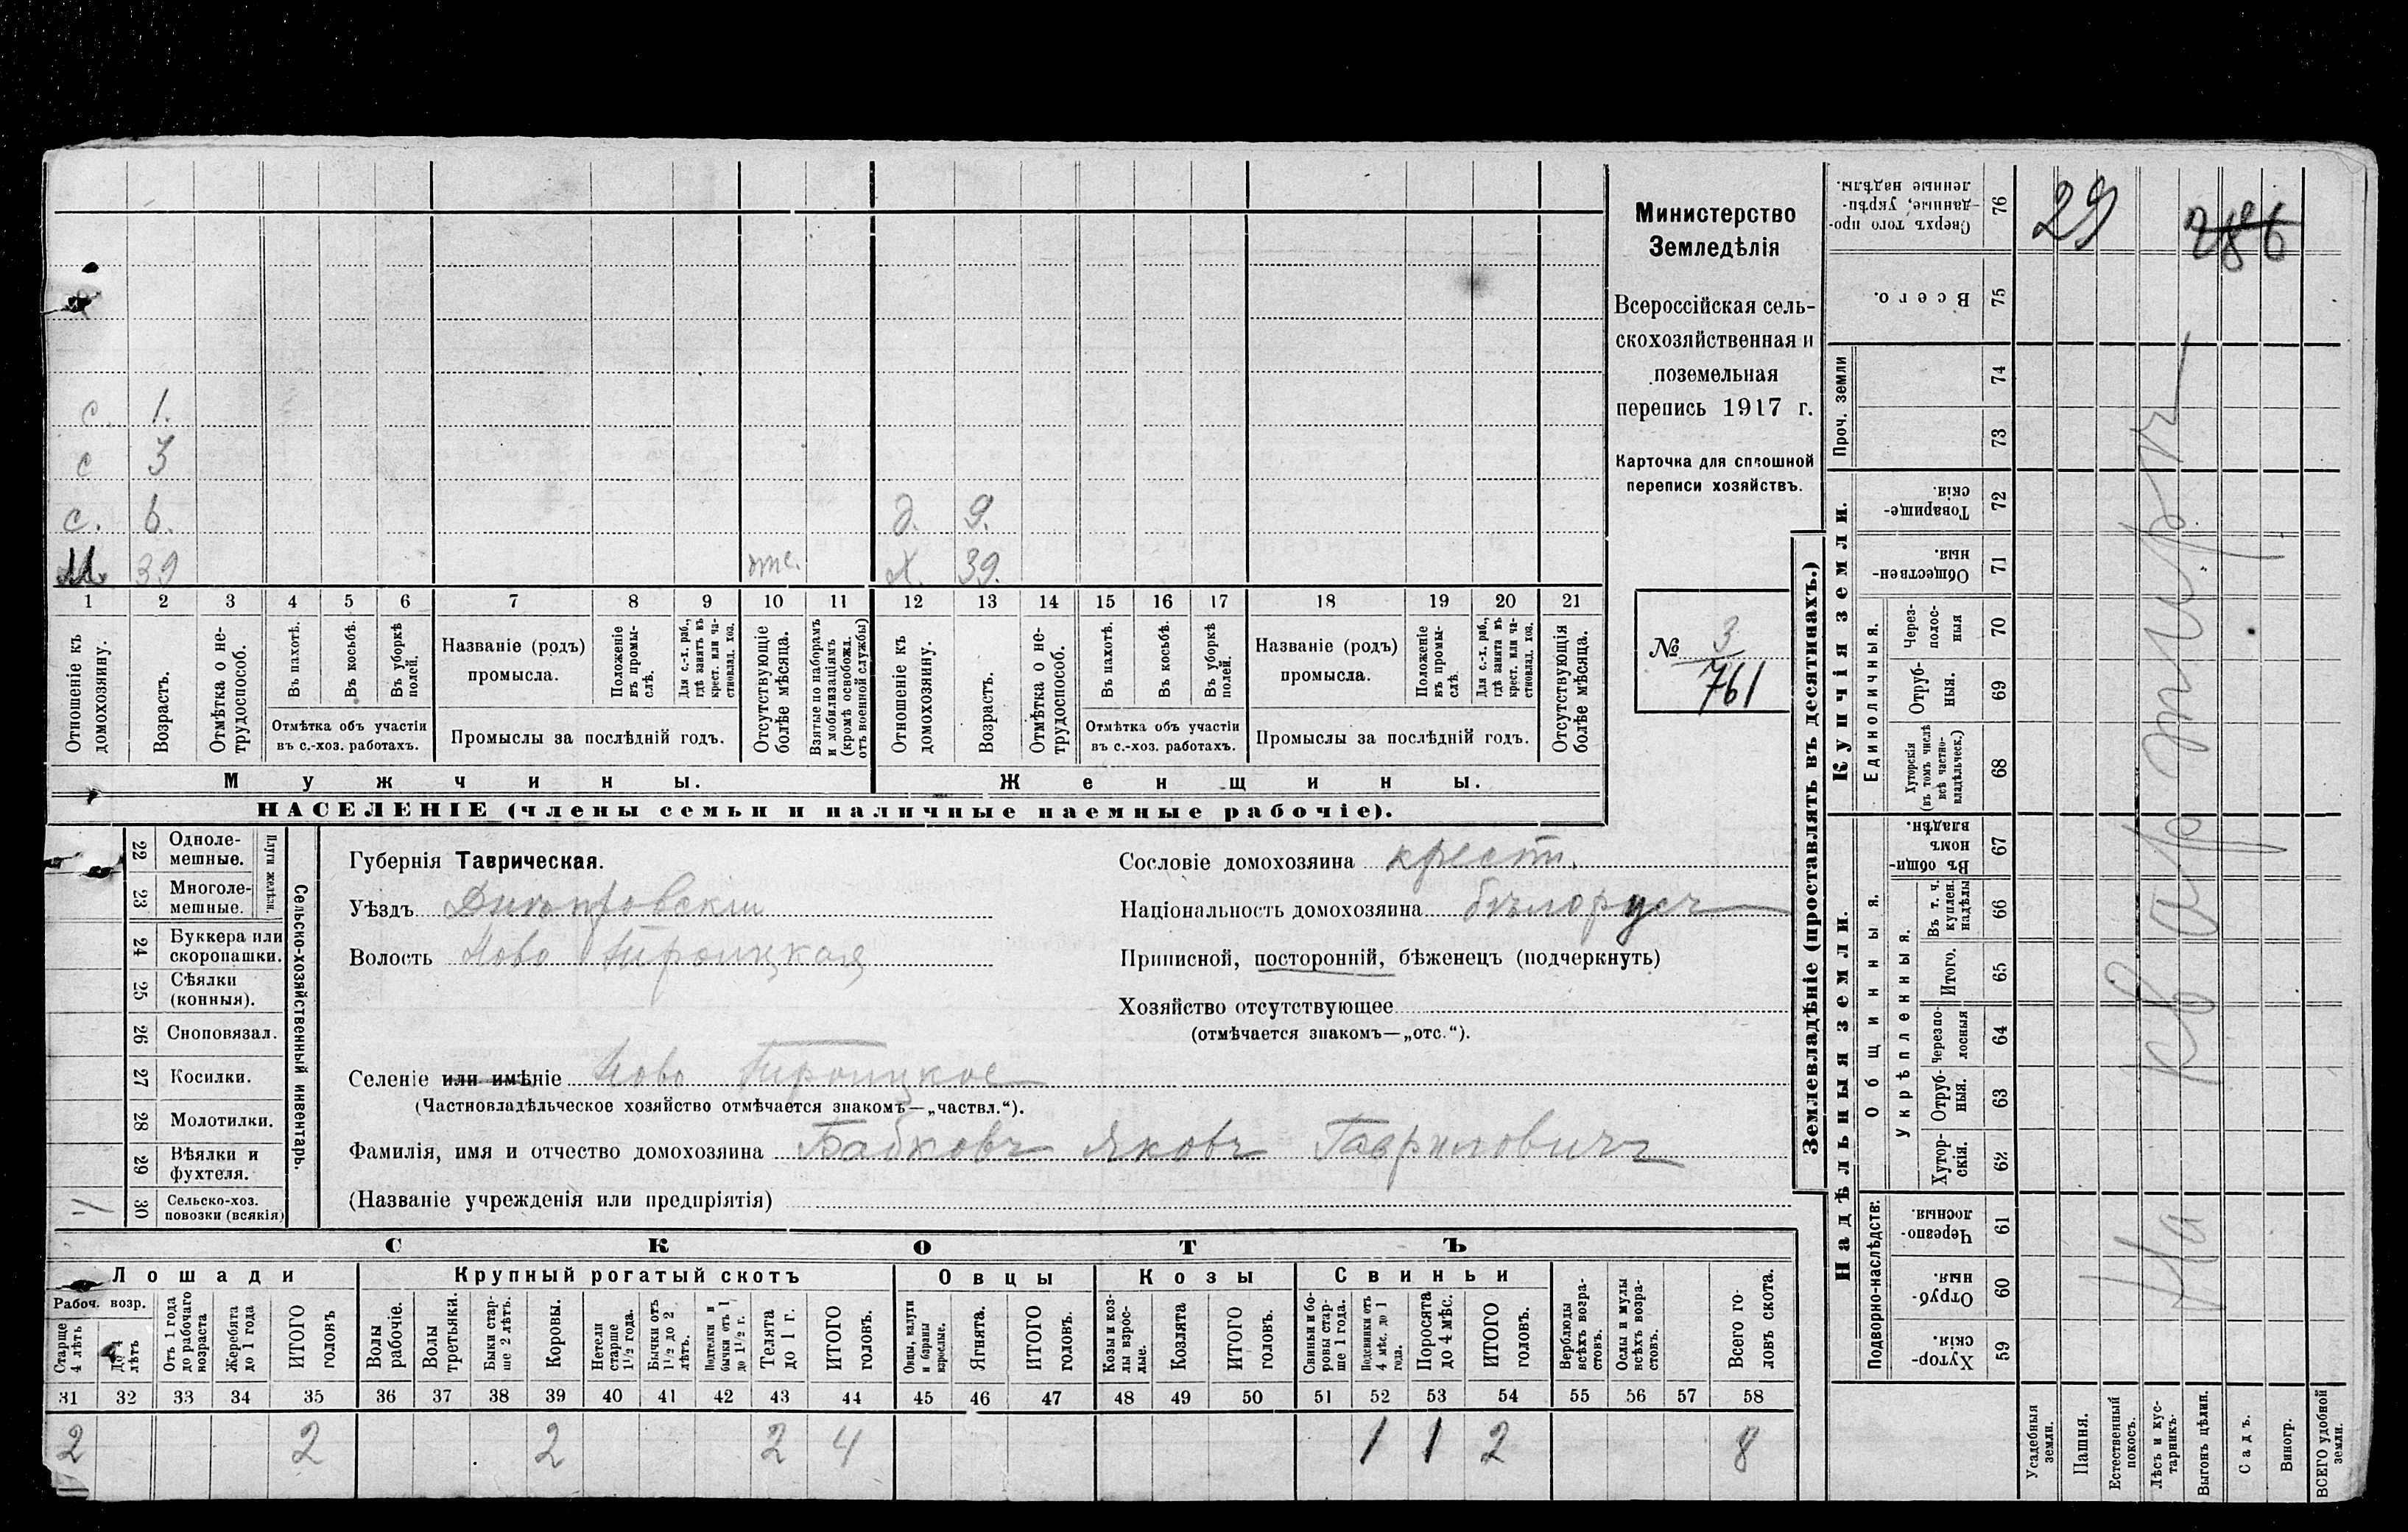 с. 1.
с 3
с. 6. д. 9.
39 же. Х. 39.
1 2 3 4 5 6 7 8 9 10 11 12 13 14 15 16 17 18 19 20 21
Отношеніе къ домохозяину.
Возрастъ.
Отмѣтка о не-трудоспособ.
Въ пахотѣ.
Въ косьбѣ.
Въ уборкѣ полей.
Отмѣтка объ участіи въ с.-хоз. работахъ.
Названіе (родъ) промысла.
Положеніе въ промы-слѣ.
Для с.-х. раб., гдѣ занятъ въ крест. или ча-стновлад. хоз.
Промыслы за послѣдній годъ.
Отсутствующіе болѣе мѣсяца.
Взятые по наборамъ и мобилизаціямъ (кромѣ освобожд. отъ военной службы)
Отношеніе къ домохозяину.
Возрастъ.
Отмѣтка о не-трудоспособ.
Въ пахотѣ.
Въ косьбѣ.
Въ уборкѣ полей.
Отмѣтка объ участіи въ с.-хоз. работахъ.
Названіе (родъ) промысла.
Положеніе въ промы-слѣ.
Для с.-х. раб., гдѣ занята въ крест. или ча-стновлад. хоз.
Промыслы за послѣдній годъ.
Отсутствующія болѣе мѣсяца.
Мужчины. Женщины.
НАСЕЛЕНІЕ (члены семьи и наличные наемные рабочіе).
Министерство
Земледѣлія
Всероссійская сель-
скохозяйственная и
поземельная
перепись 1917 г.
Карточка для сплошной
переписи хозяйствъ.
№ 3
761
22 Одноле-мешные.
23 Многоле-мешные.
Плуги желѣзн.
24 Буккера или скоропашки.
25 Сѣялки (конныя).
26 Сноповязал.
27 Косилки.
28 Молотилки.
29 Вѣялки и фухтеля.
30 Сельско-хоз. повозки (всякія) 1
Сельско-хозяйственный инвентарь.
Губернія Таврическая.
Уѣздъ Днѣпровскій
Волость Ново Троицкая
Сословіе домохозяина крест.
Національность домохозяина бѣлорусъ
Приписной, посторонній, бѣженецъ (подчеркнуть)
Хозяйство отсутствующее
(отмѣчается знакомъ—„отс.“).
Селеніе или имѣніе Ново Троицкое
(Частновладѣльческое хозяйство отмѣчается знакомъ—„частвл.“).
Фамилія, имя и отчество домохозяина Бабковъ Яковъ Гавриловичъ
(Названіе учрежденія или предпріятія)
СКОТЪ
Лошади Крупный рогатый скотъ Овцы Козы Свиньи
Рабоч. возр.
Старше 4 лѣтъ
До 4 лѣтъ
Отъ 1 года до рабочаго возраста
Жеребята до 1 года
ИТОГО головъ
Волы рабочіе.
Волы третьяки.
Быки стар-ше 2 лѣтъ.
Коровы.
Нетели старше 1½ года.
Бычки отъ 1½ до 2 лѣтъ.
Подтелки и бычки отъ 1 до 1½ г.
Телята до 1 г.
ИТОГО головъ.
Овцы, валухи и бараны взрослые.
Ягнята.
ИТОГО головъ.
Козы и коз-лы взрос-лые.
Козлята
ИТОГО головъ.
Свиньи и бо-ровы стар-ше 1 года.
Подсвинки отъ 4 мѣс. до 1 года.
Поросята до 4 мѣс.
ИТОГО головъ.
Верблюды всѣхъ возра-стовъ.
Ослы и мулы всѣхъ возра-стовъ.
Всего го-ловъ скота.
31 32 33 34 35 36 37 38 39 40 41 42 43 44 45 46 47 48 49 50 51 52 53 54 55 56 57 58
2 2 2 2 4 1 1 2 8
Землевладѣніе (проставлять въ десятинахъ.)
Купчія земли.
Надѣльныя земли.
Проч. земли
Единоличныя.
Общинныя.
Укрѣпленныя.
Подворно-наслѣдств:
Сверхъ того про-данные, укрѣп-ленные надѣлы. 76
Всего. 75
74
73
Товарище-скія. 72
Обществен-ныя. 71
Через-полос-ныя 70
Отруб-ныя. 69
Хуторскія (въ томъ числѣ всѣ частно-владѣльческ.) 68
Въ общи-номъ владѣн. 67
Въ т. ч. куплен. надѣлы 66
Итого. 65
Черезпо-лосныя 64
Отруб-ныя. 63
Хутор-скія. 62
Черезпо-лосныя. 61
Отруб-ныя. 60
Хутор-скія. 59
Усадебныя земли.
Пашня.
Естественный покосъ.
Лѣсъ и кус-тарникъ.
Выгонъ цѣлин.
Садъ.
Виногр.
ВСЕГО удобной земли.
29
На квартирѣ